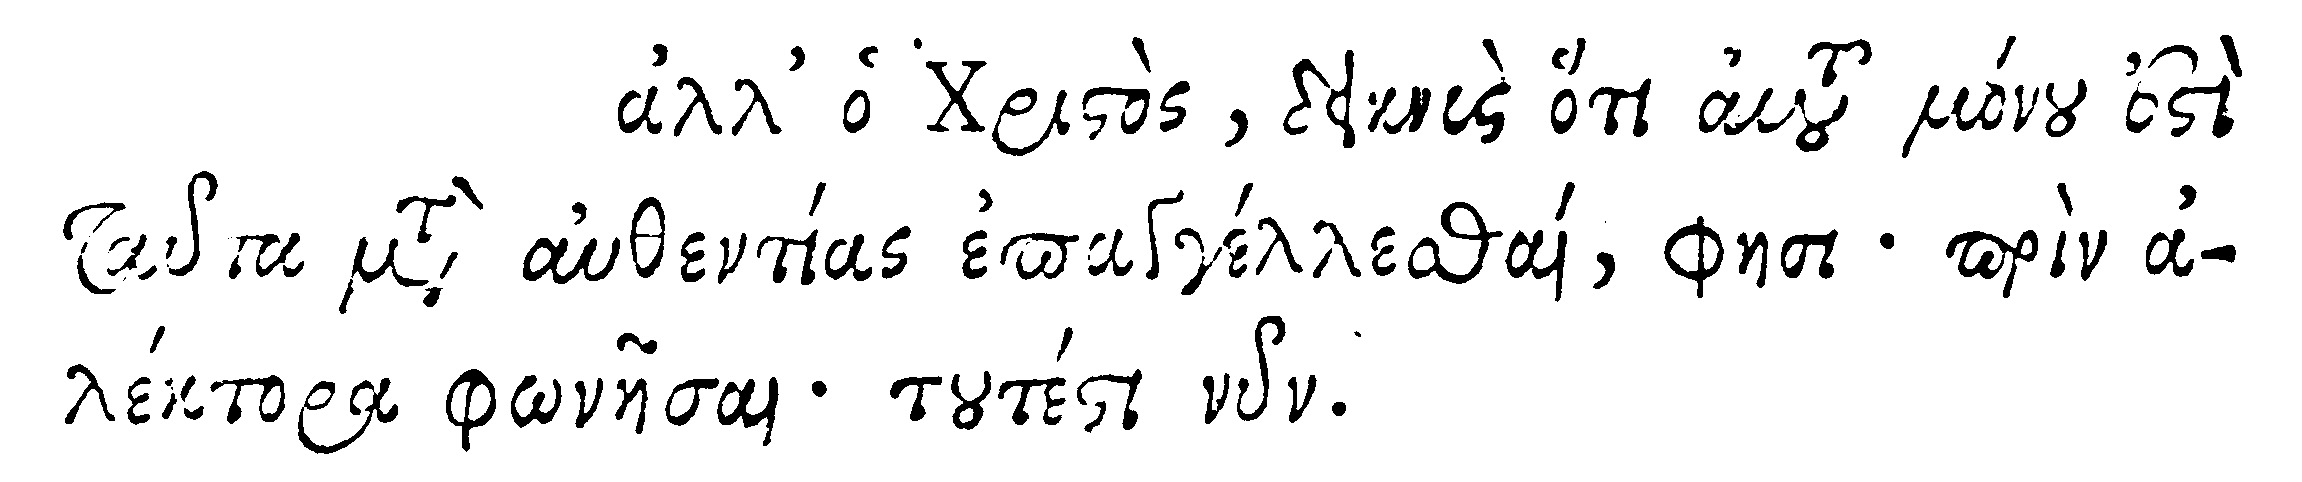 ἀλλ’ ὁ Χριστὸς, δεικνὺς ὅτι αὐτοῦ μόνου ἐστὶ
ταῦτα μετὰ αὐθεντίας ἐπαγγέλλεσθαί, φησι· πρὶν ἀ-
λέκτορα φωνῆσαι· τουτέστι νῦν.